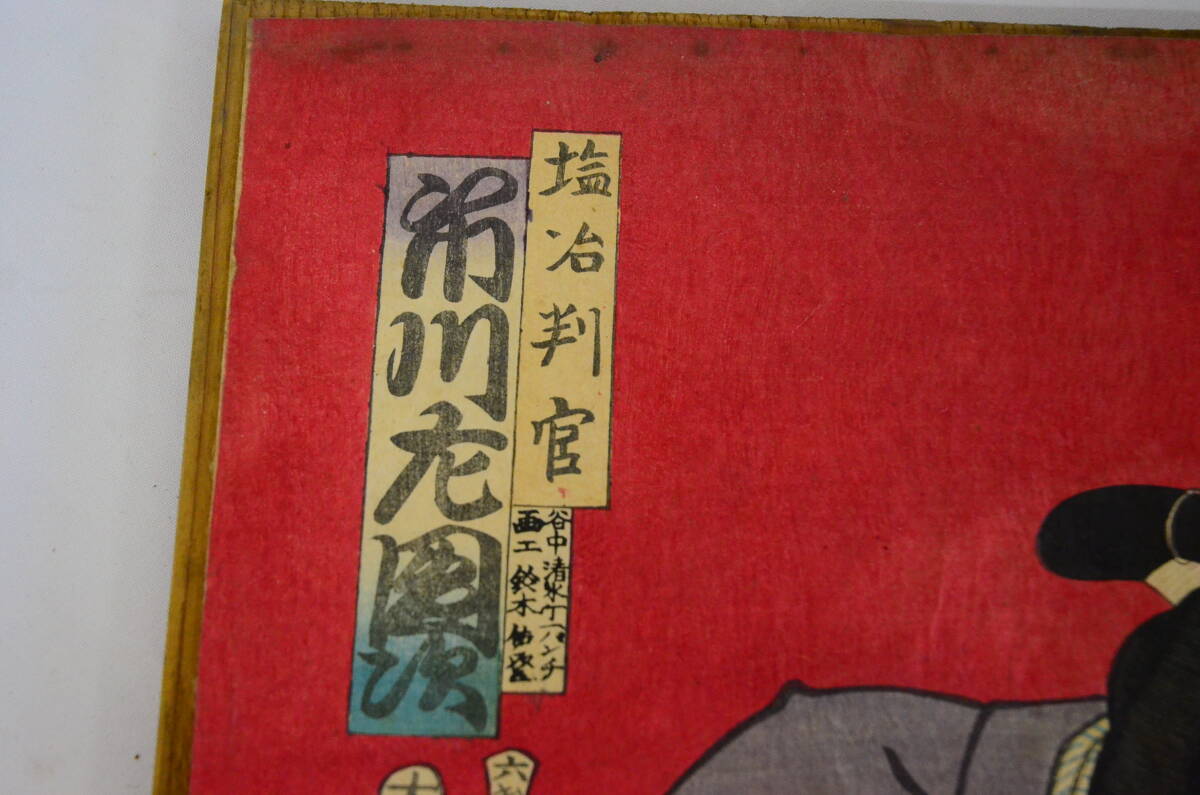 塩冶判官
市川左團次
谷中清水丁一バンチ
画工 鈴木
十
六